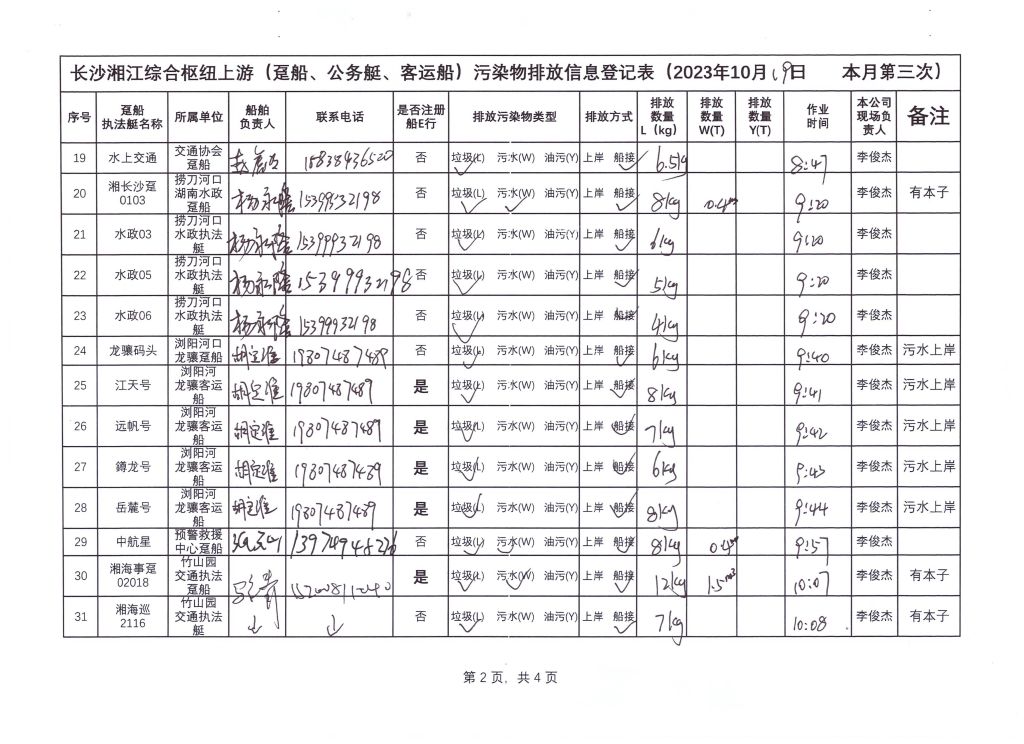 长沙湘江综合枢纽上游（趸船、公务艇、客运船）污染物排放信息登记表（2023年10月19日 本月第三次）
序号 趸船执法艇名称 所属单位 船舶负责人 联系电话 是否注册船E行 排放污染物类型 排放方式 排放数量L（kg） 排放数量W(T) 排放数量Y(T) 作业时间 本公司现场负责人 备注
19 水上交通 交通协会趸船 15838436520 否 垃圾(L) 污水(W) 油污(Y) 上岸 船接 6.5kg 8:47 李俊杰
20 湘长沙趸0103 捞刀河口湖南水政趸船 杨永隆 15399932198 否 垃圾(L) 污水(W) 油污(Y) 上岸 船接 8kg 9:20 李俊杰 有本子
21 水政03 捞刀河口水政执法艇 杨永隆 15399932198 否 垃圾(L) 污水(W) 油污(Y) 上岸 船接 6kg 9:20 李俊杰
22 水政05 捞刀河口水政执法艇 杨永隆 15399932198 否 垃圾(L) 污水(W) 油污(Y) 上岸 船接 5kg 9:20 李俊杰
23 水政06 捞刀河口水政执法艇 杨永隆 15399932198 否 垃圾(L) 污水(W) 油污(Y) 上岸 船接 4kg 9:20 李俊杰
24 龙骧码头 浏阳河口龙骧趸船 胡定准 19807487489 否 垃圾(L) 污水(W) 油污(Y) 上岸 船接 6kg 9:40 李俊杰 污水上岸
25 江天号 浏阳河龙骧客运船 胡定准 19807487489 是 垃圾(L) 污水(W) 油污(Y) 上岸 船接 8kg 9:41 李俊杰 污水上岸
26 远帆号 浏阳河龙骧客运船 胡定准 19807487489 是 垃圾(L) 污水(W) 油污(Y) 上岸 船接 7kg 9:42 李俊杰 污水上岸
27 鐏龙号 浏阳河龙骧客运船 胡定准 19807487489 是 垃圾(L) 污水(W) 油污(Y) 上岸 船接 6kg 9:43 李俊杰 污水上岸
28 岳麓号 浏阳河龙骧客运船 胡定准 19807487489 是 垃圾(L) 污水(W) 油污(Y) 上岸 船接 8kg 9:44 李俊杰 污水上岸
29 中航星 预警救援中心趸船 否 垃圾(L) 污水(W) 油污(Y) 上岸 船接 8kg 9:57 李俊杰
30 湘海事趸02018 竹山园交通执法趸船 是 垃圾(L) 污水(W) 油污(Y) 上岸 船接 12kg 1.5m³ 10:07 李俊杰 有本子
31 湘海巡2116 竹山园交通执法艇 ↓ ↓ 否 垃圾(L) 污水(W) 油污(Y) 上岸 船接 7kg 10:08 李俊杰 有本子
第 2 页，共 4 页